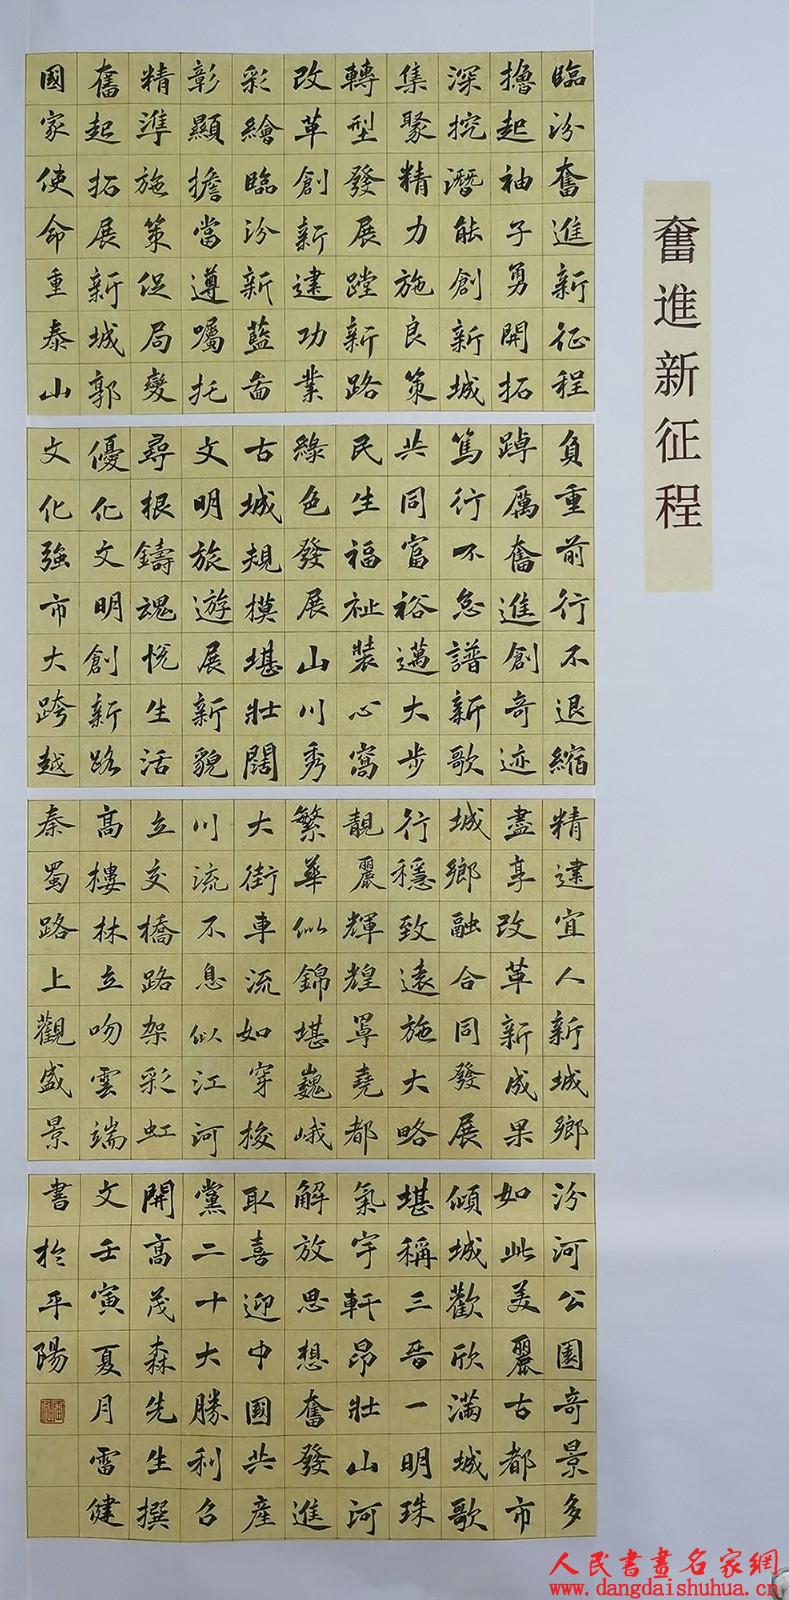 奮進新征程
臨汾奮進新征程
擼起袖子勇開拓
深挖潛能創新城
集聚精力施良策
轉型發展蹚新路
改革創新建功業
彩繪臨汾新藍啚
彰顯擔當遵囑托
精準施策促局變
奮起拓展新城郭
國家使命重泰山
負重前行不退縮
踔厲奮進創奇迹
篤行不怠譜新歌
共同富裕邁大步
民生福祉裝心窩
綠色發展山川秀
古城規模堪壯闊
文明旅遊展新貌
尋根鑄魂悅生活
優化文明創新路
文化強市大跨越
精建宜人新城鄉
盡享改革新成果
城鄉融合同發展
行穩致遠施大略
靚麗輝煌罩堯都
繁華似錦堪巍峨
大街車流如穿梭
川流不息似江河
立交橋路架彩虹
高樓林立吻雲端
秦蜀路上觀盛景
汾河公園奇景多
如此美麗古都市
傾城歡欣滿城歌
堪稱三晉一明珠
氣宇軒昂壯山河
解放思想奮發進
取喜迎中國共產
黨二十大勝利召
開高茂森先生撰
文壬寅夏月雷健
書於平陽
人民書畫名家網
www.dangdaishuhua.cn